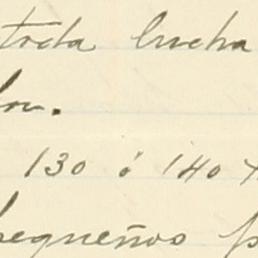 toda lucha
130 ó 140
pequeños